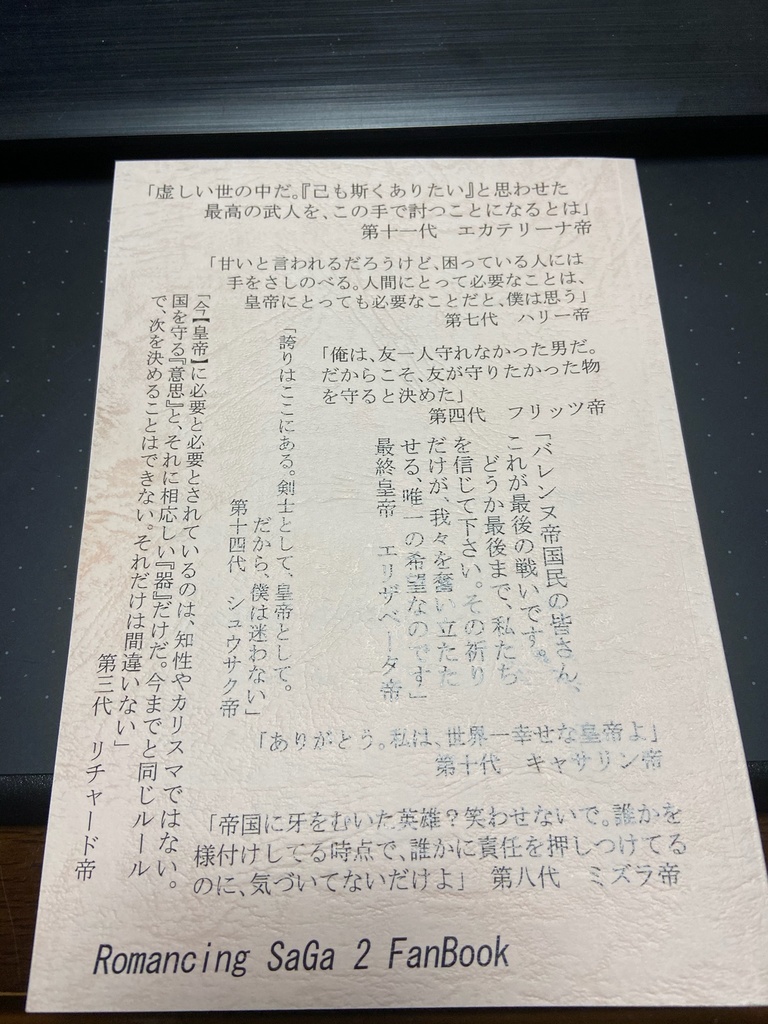 「虚しい世の中だ。『己も斯くありたい』と思わせた
最高の武人を、この手で討つことになるとは」
第十一代　エカテリーナ帝
「甘いと言われるだろうけど、困っている人には
手をさしのべる。人間にとって必要なことは、
皇帝にとっても必要なことだと、僕は思う」
第七代　ハリー帝
「俺は、友一人守れなかった男だ。
だからこそ、友が守りたかった物
を守ると決めた」
第四代　フリッツ帝
「バレンヌ帝国民の皆さん、
これが最後の戦いです。
どうか最後まで、私たち
を信じて下さい。その祈り
だけが、我々を奮い立たた
せる、唯一の希望なのです」
最終皇帝　エリザベータ帝
「誇りはここにある。剣士として、皇帝として。
だから、僕は迷わない」
第十四代　シュウサク帝
「今【皇帝】に必要と必要とされているのは、知性やカリスマではない。
国を守る『意思』と、それに相応しい『器』だけだ。今までと同じルール
で、次を決めることはできない。それだけは間違いない」
第三代　リチャード帝
「ありがとう。私は、世界一幸せな皇帝よ」
第十代　キャサリン帝
「帝国に牙をむいた英雄？笑わせないで。誰かを
様付けしてる時点で、誰かに責任を押しつけてる
のに、気づいてないだけよ」　第八代　ミズラ帝
Romancing SaGa 2 FanBook